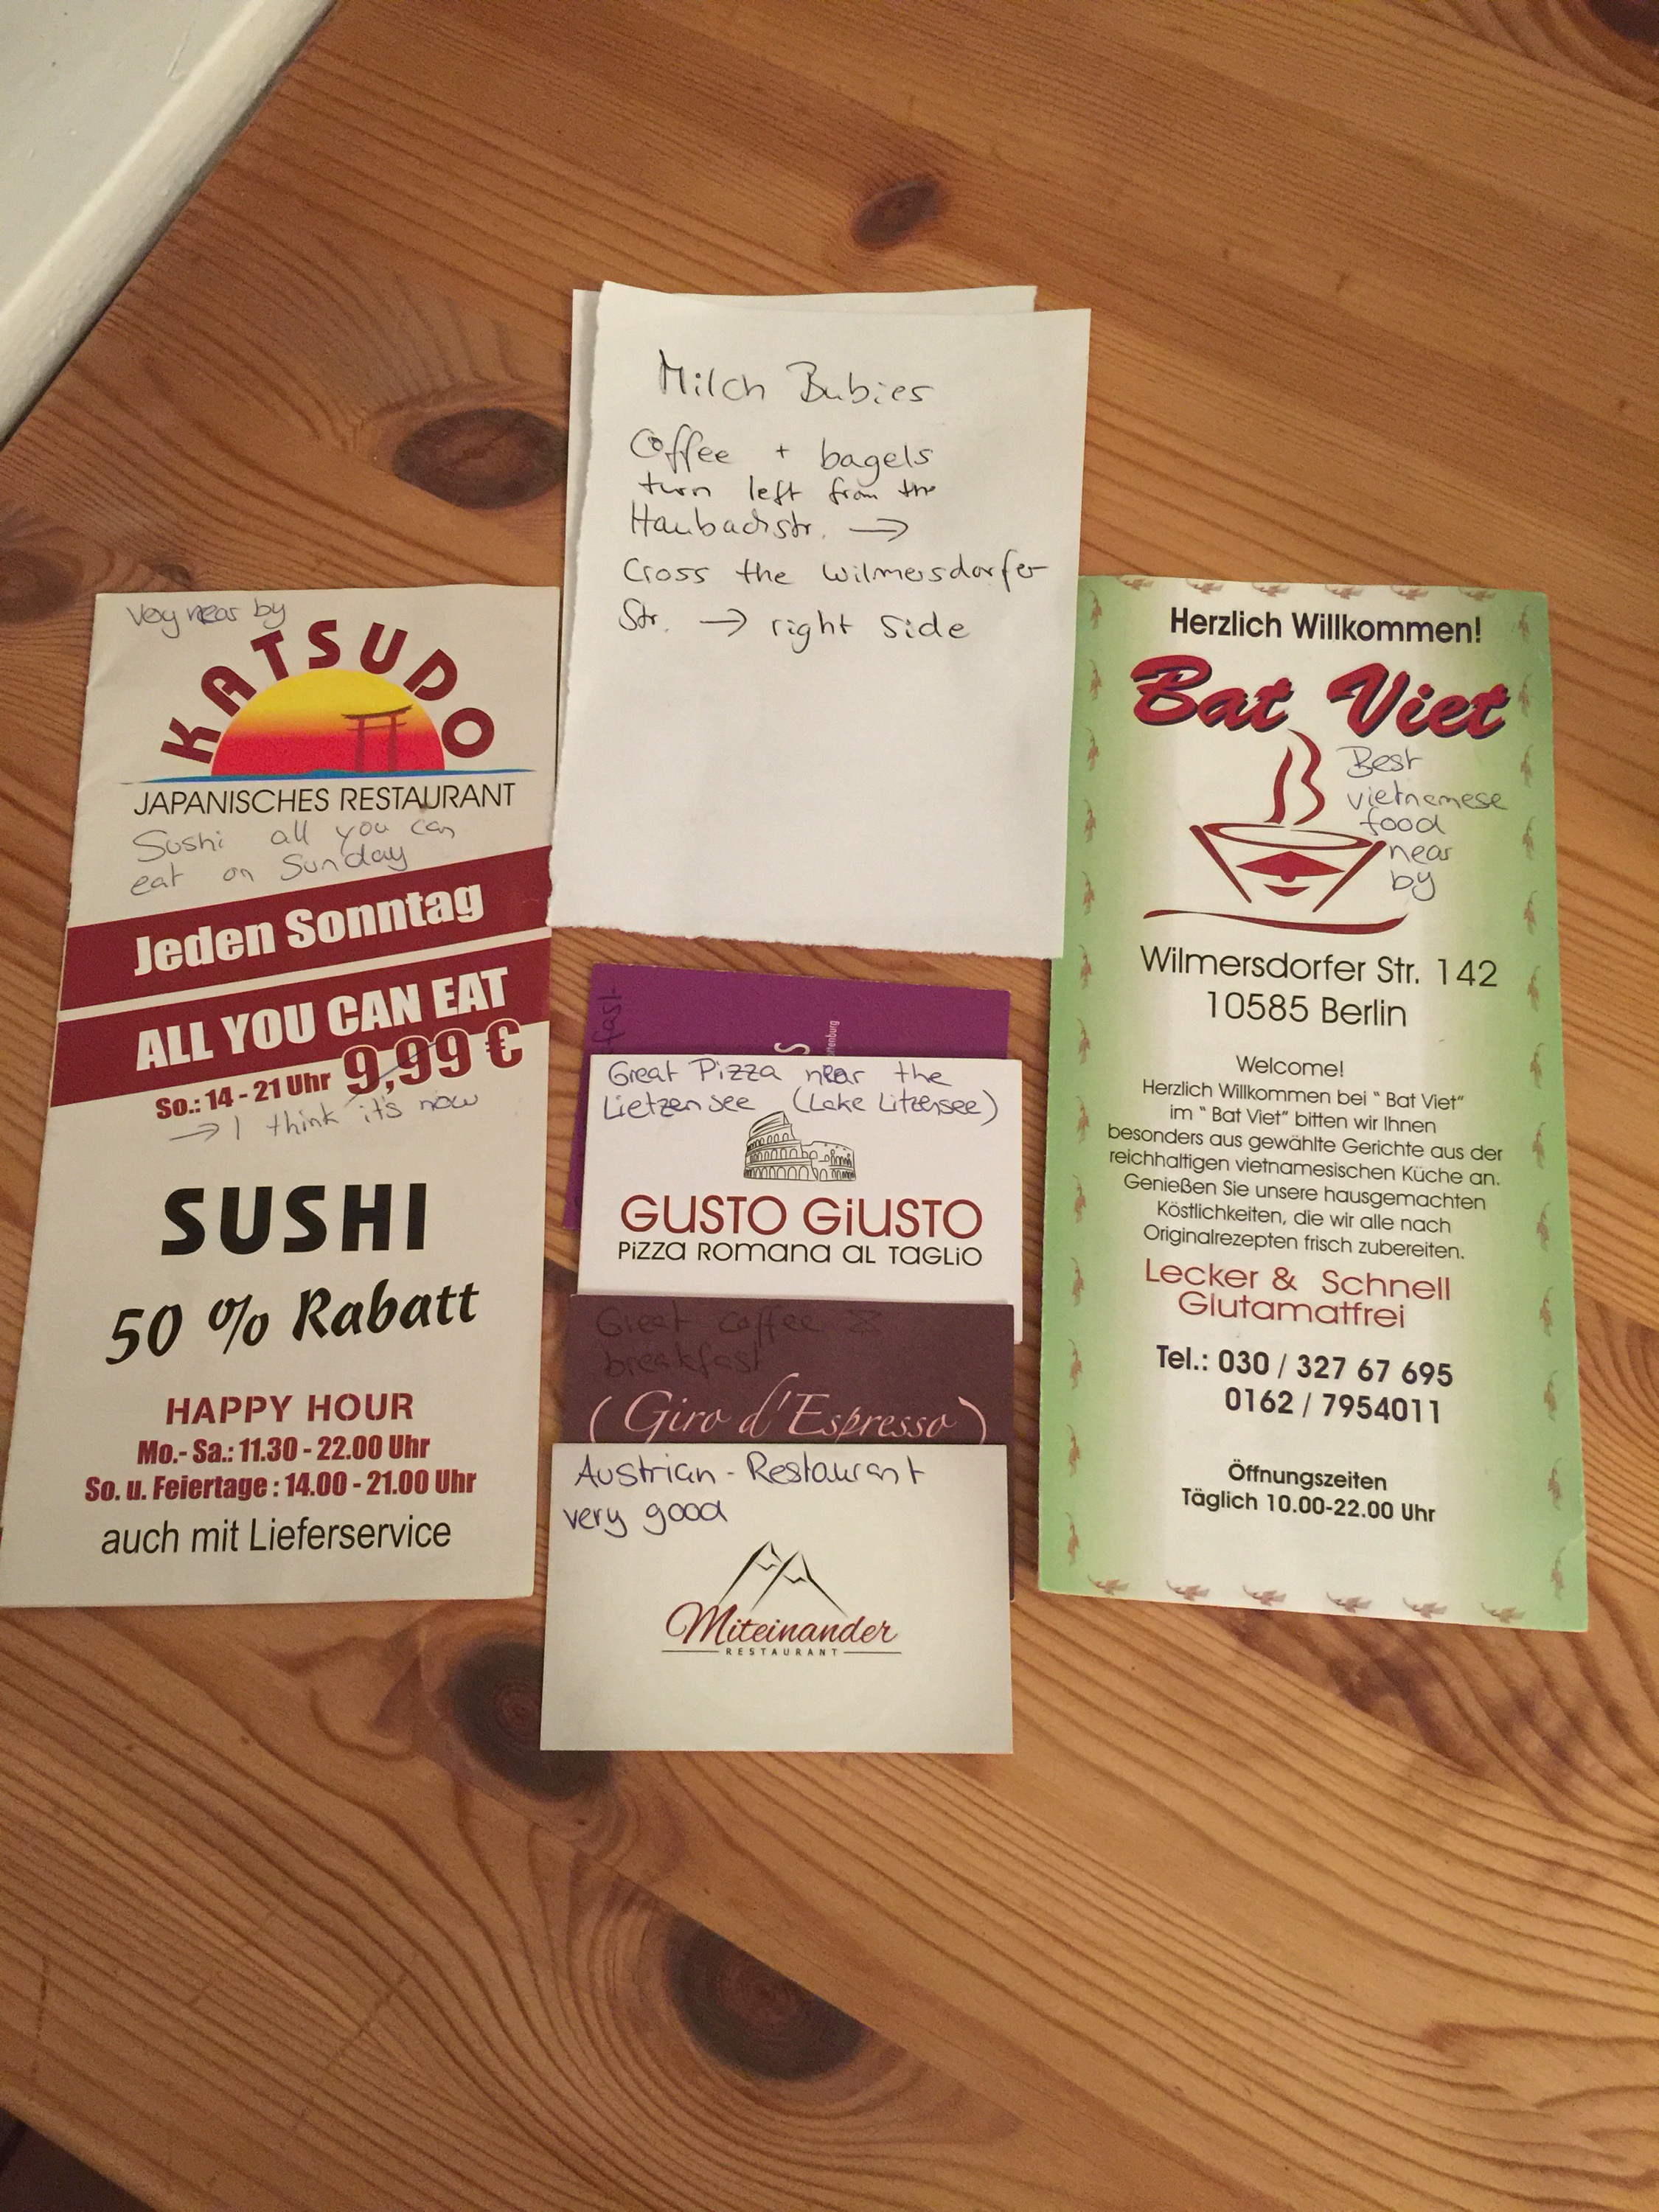 Milch Bubies
Coffee + bagels
turn left from the
Haubachstr. →
Cross the Wilmersdorfer
Str. → right side
Very near by
KATSUDO
JAPANISCHES RESTAURANT
Sushi all you can
eat on Sunday
Jeden Sonntag
ALL YOU CAN EAT
So.: 14 - 21 Uhr 9,99 €
→ I think it's now
SUSHI
50 % Rabatt
HAPPY HOUR
Mo.- Sa.: 11.30 - 22.00 Uhr
So. u. Feiertage : 14.00 - 21.00 Uhr
auch mit Lieferservice
Great Pizza near the
Lietzensee (Lake Litzensee)
GUSTO GiUSTO
PiZZa Romana aL TaGLiO
Great Coffee &
breakfast
( Giro d'Espresso )
Austrian - Restaurant
very good
Miteinander
RESTAURANT
Herzlich Willkommen!
Bat Viet
Best
vietnamese
food
near
by
Wilmersdorfer Str. 142
10585 Berlin
Welcome!
Herzlich Willkommen bei " Bat Viet"
im " Bat Viet" bitten wir Ihnen
besonders aus gewählte Gerichte aus der
reichhaltigen vietnamesischen Küche an.
Genießen Sie unsere hausgemachten
Köstlichkeiten, die wir alle nach
Originalrezepten frisch zubereiten.
Lecker & Schnell
Glutamatfrei
Tel.: 030 / 327 67 695
0162 / 7954011
Öffnungszeiten
Täglich 10.00-22.00 Uhr